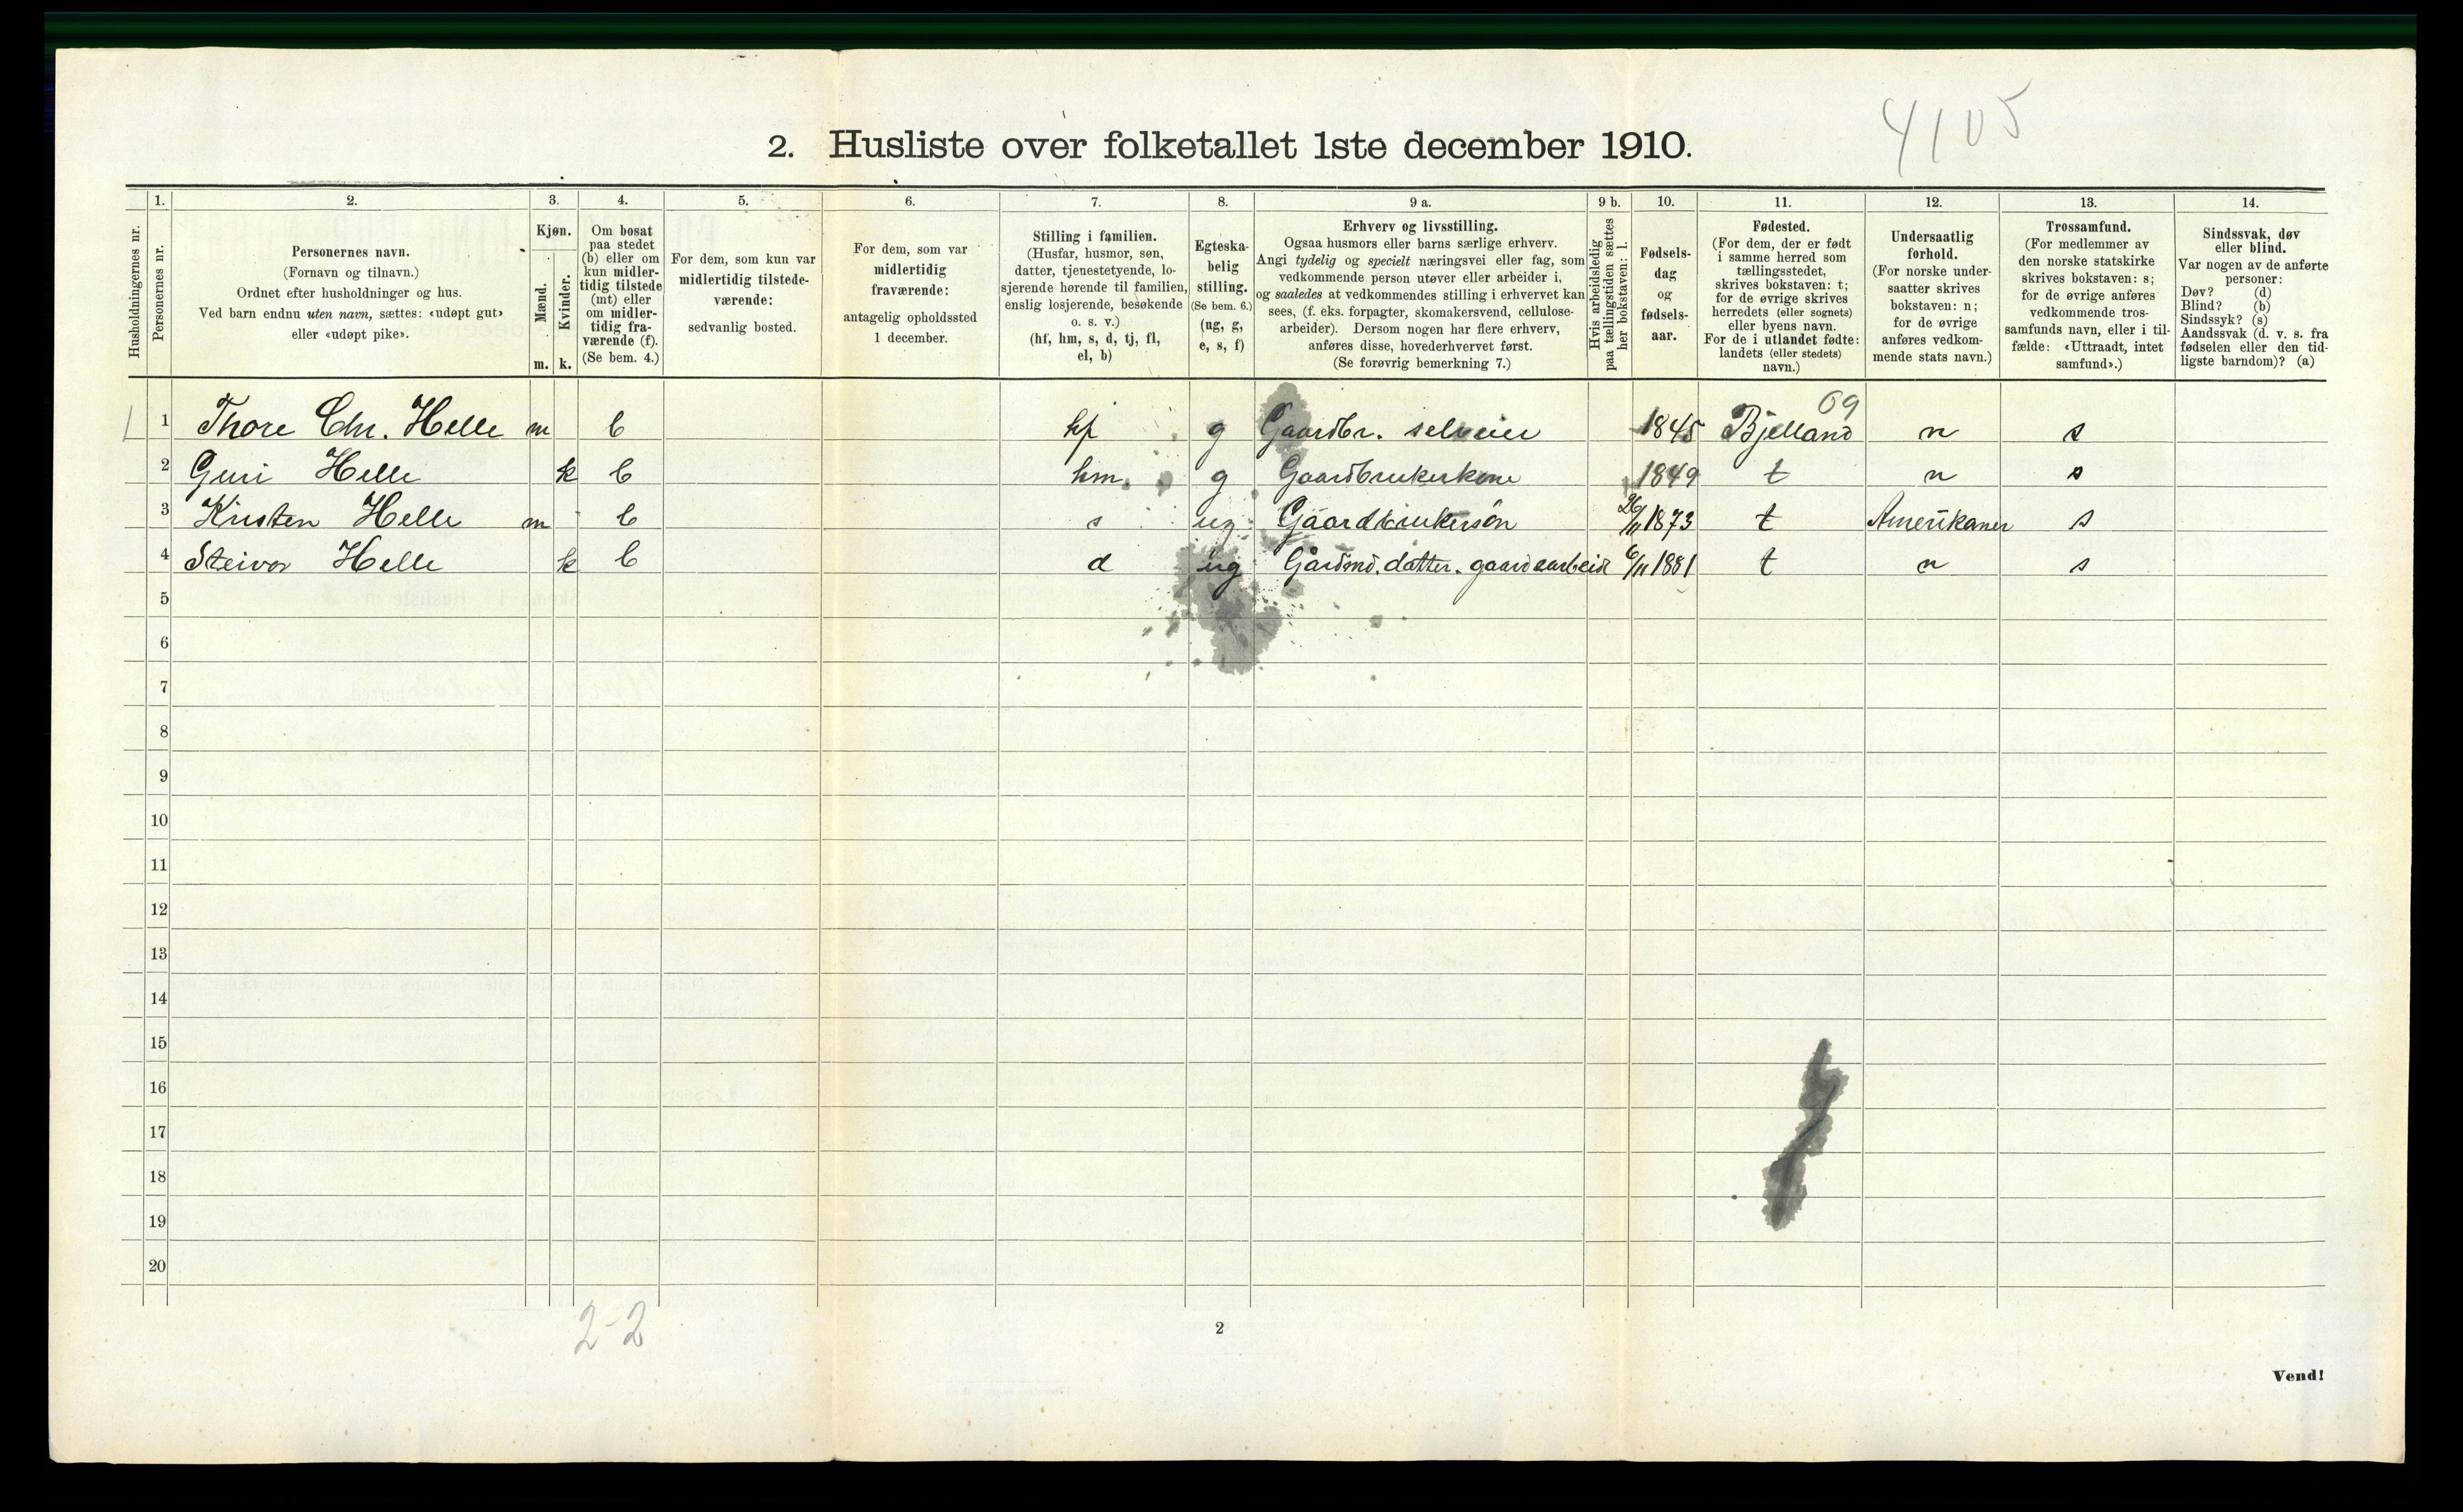 4105
2. Husliste over folketallet 1ste december 1910.
Husholdningernes nr.
1.
Personernes nr.
2.
Personernes navn.
(Fornavn og tilnavn.)
Ordnet efter husholdninger og hus.
Ved barn endnu uten navn, sættes: «udøpt gut»
eller «udøpt pike».
3.
Kjøn.
Mænd.
m.
Kvinder.
k.
4.
Om bosat
paa stedet
(b) eller om
kun midler-
tidig tilstede
(mt) eller
om midler-
tidig fra-
værende (f).
(Se bem. 4.)
5.
For dem, som kun var
midlertidig tilstede-
værende:
sedvanlig bosted.
6.
For dem, som var
midlertidig
fraværende:
antagelig opholdssted
1 december.
7.
Stilling i familien.
(Husfar, husmor, søn,
datter, tjenestetyende, lo-
sjerende hørende til familien,
enslig losjerende, besøkende
o. s. v.)
(hf, hm, s, d, tj, fl,
el, b)
8.
Egteska-
belig
stilling.
(Se bem. 6.)
(ug, g,
e, s, f)
9 a.
Erhverv og livsstilling.
Ogsaa husmors eller barns særlige erhverv.
Angi tydelig og specielt næringsvei eller fag, som
vedkommende person utøver eller arbeider i,
og saaledes at vedkommendes stilling i erhvervet kan
sees, (f. eks. forpagter, skomakersvend, cellulose-
arbeider). Dersom nogen har flere erhverv,
anføres disse, hovederhvervet først.
(Se forøvrig bemerkning 7.)
9 b.
Hvis arbeidsledig
paa tællingstiden sættes
her bokstaven: l.
10.
Fødsels-
dag
og
fødsels-
aar.
11.
Fødested.
(For dem, der er født
i samme herred som
tællingsstedet,
skrives bokstaven: t;
for de øvrige skrives
herredets (eller sognets)
eller byens navn.
For de i utlandet fødte:
landets (eller stedets)
navn.)
12.
Undersaatlig
forhold.
(For norske under-
saatter skrives
bokstaven: n;
for de øvrige
anføres vedkom-
mende stats navn.)
13.
Trossamfund.
(For medlemmer av
den norske statskirke
skrives bokstaven: s;
for de øvrige anføres
vedkommende tros-
samfunds navn, eller i til-
fælde: «Uttraadt, intet
samfund».)
14.
Sindssvak, døv
eller blind.
Var nogen av de anførte
personer:
Døv? (d)
Blind? (b)
Sindssyk? (s)
Aandssvak (d. v. s. fra
fødselen eller den tid-
ligste barndom)? (a)
69
1 1 Thore Chr. Helle m b hf g Gaardbr. selveier 1845 Bjelland n s
2 Guri Helle k b hm. g Gaardbrukerkone 1849 t n s
3 Kristen Helle m b s ug Gaardbrukersøn 26/11 1873 t Amerikaner s
4 Steivor Helle k b d ug Gårdmd. datter. gaardsarbeide 6/11 1881 t n s
5
6
7
8
9
10
11
12
13
14
15
16
17
18
19
20
2-2
2
Vend!